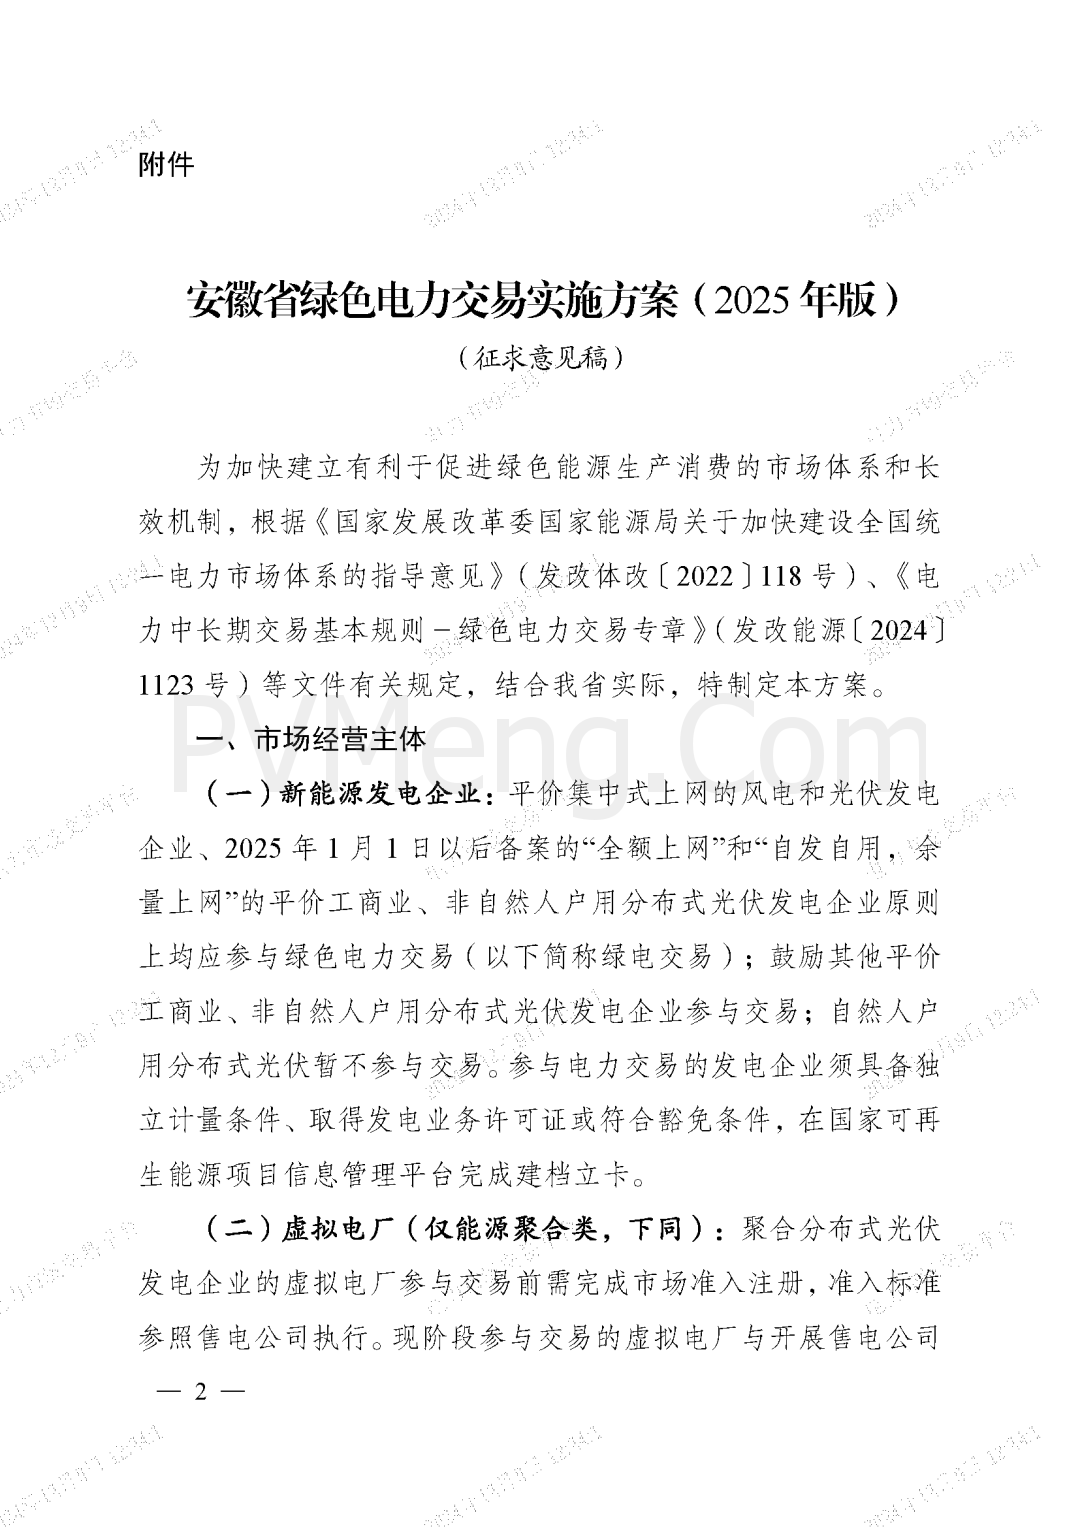 附件
安徽省绿色电力交易实施方案（2025 年版）
（征求意见稿）
为加快建立有利于促进绿色能源生产消费的市场体系和长
效机制，根据《国家发展改革委国家能源局关于加快建设全国统
一电力市场体系的指导意见》（发改体改〔2022〕118 号）、《电
力中长期交易基本规则－绿色电力交易专章》（发改能源〔2024〕
1123 号）等文件有关规定，结合我省实际，特制定本方案。
PVMeng.Com
一、市场经营主体
（一）新能源发电企业：平价集中式上网的风电和光伏发电
企业、2025 年 1 月 1 日以后备案的“全额上网”和“自发自用，余
量上网”的平价工商业、非自然人户用分布式光伏发电企业原则
上均应参与绿色电力交易（以下简称绿电交易）；鼓励其他平价
工商业、非自然人户用分布式光伏发电企业参与交易；自然人户
用分布式光伏暂不参与交易。参与电力交易的发电企业须具备独
立计量条件、取得发电业务许可证或符合豁免条件，在国家可再
生能源项目信息管理平台完成建档立卡。
（二）虚拟电厂（仅能源聚合类，下同）：聚合分布式光伏
发电企业的虚拟电厂参与交易前需完成市场准入注册，准入标准
参照售电公司执行。现阶段参与交易的虚拟电厂与开展售电公司
— 2 —